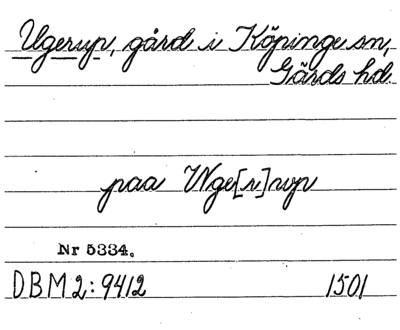 Ugerup, gård i Köpinge sn,
Gärds hd.
paa Wge[r]wp
Nr 5334.
DBM2:9412 1501